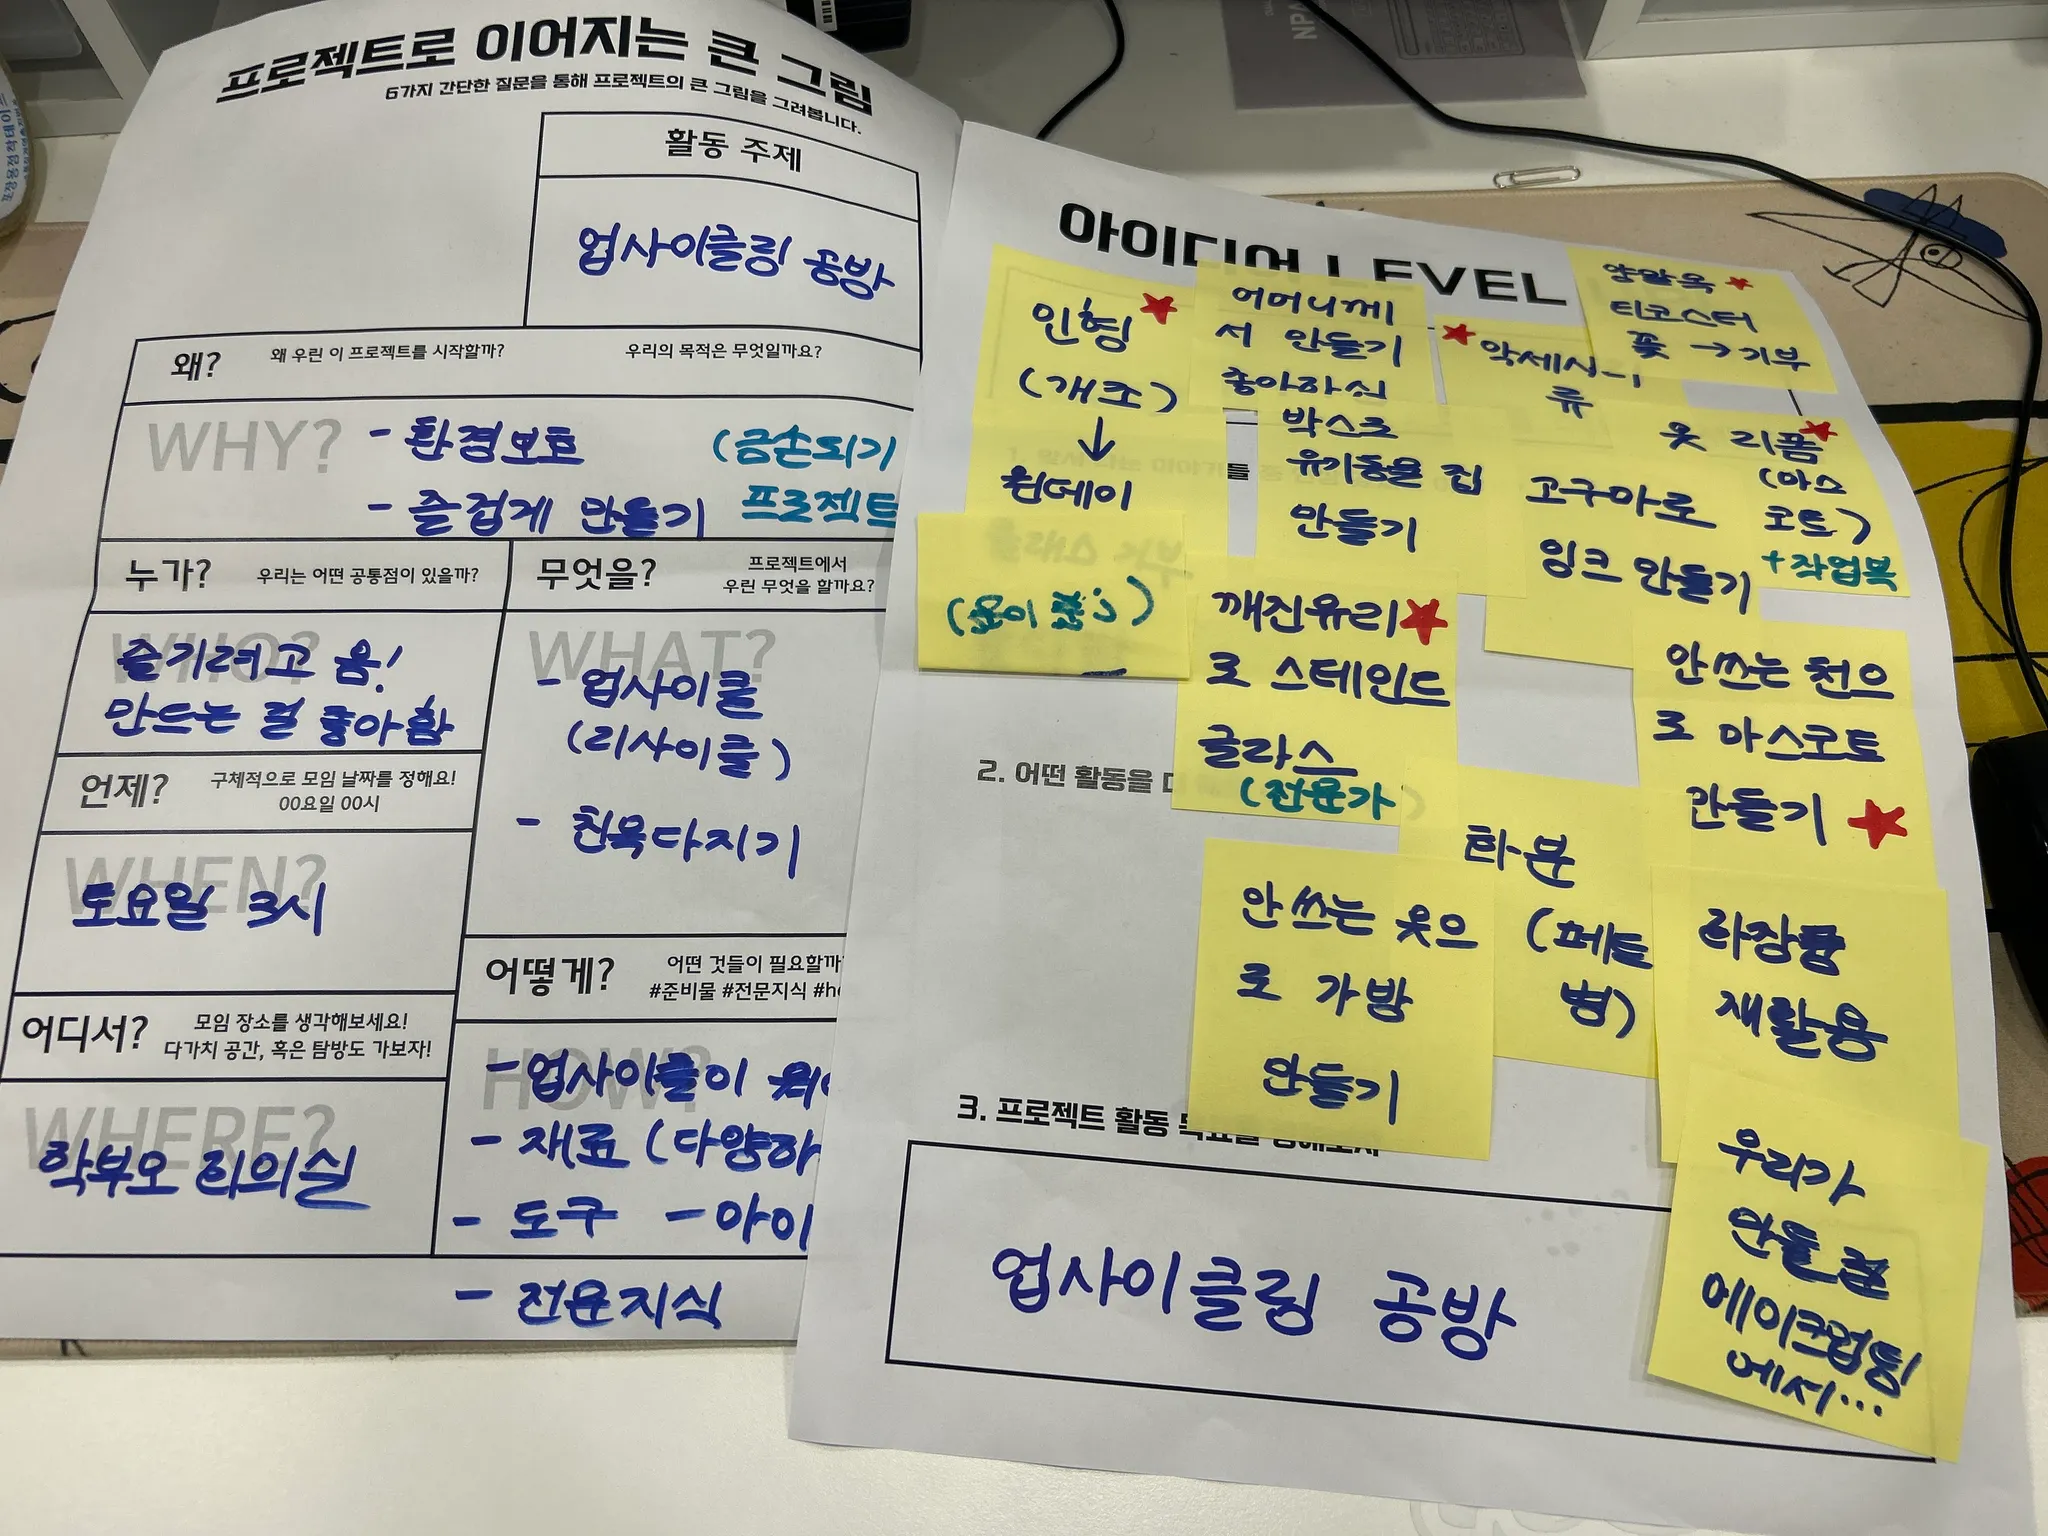 프로젝트로 이어지는 큰 그림
6가지 간단한 질문을 통해 프로젝트의 큰 그림을 그려봅니다.
활동 주제
업사이클링 공방
왜? 왜 우린 이 프로젝트를 시작할까? 우리의 목적은 무엇일까요?
WHY?
- 환경보호 (금손되기
- 즐겁게 만들기 프로젝트
누가? 우리는 어떤 공통점이 있을까?
WHO?
즐기려고 옴!
만드는 걸 좋아함
무엇을? 프로젝트에서
우린 무엇을 할까요?
WHAT?
- 업사이클
(리사이클)
- 친목다지기
언제? 구체적으로 모임 날짜를 정해요!
00요일 00시
WHEN?
토요일 3시
어디서? 모임 장소를 생각해보세요!
다가치 공간, 혹은 탐방도 가보자!
WHERE?
학부모 회의실
어떻게? 어떤 것들이 필요할까
#준비물 #전문지식
HOW?
- 업사이클이
- 재료 (다양하
- 도구 - 아이
- 전문지식
아이디어 LEVEL
인형
(개조)
↓
원데이
어머니께
서 만들기
좋아하심
악세사리
류
양말목
티코스터
꽃 → 기부
박스로
유기동물 집
만들기
고구마로
잉크 만들기
옷 리폼
(마스
코트)
+작업복
깨진유리
로 스테인드
글라스
(전문가)
안쓰는 천으
로 마스코트
만들기
2. 어떤 활동을
안쓰는 옷으
로 가방
만들기
화분
(페트
병)
화장품
재활용
우리가
만들
에이크럽통!
에서...
3. 프로젝트 활동 목표를 정해보자
업사이클링 공방
NPA
포장용점착테이프